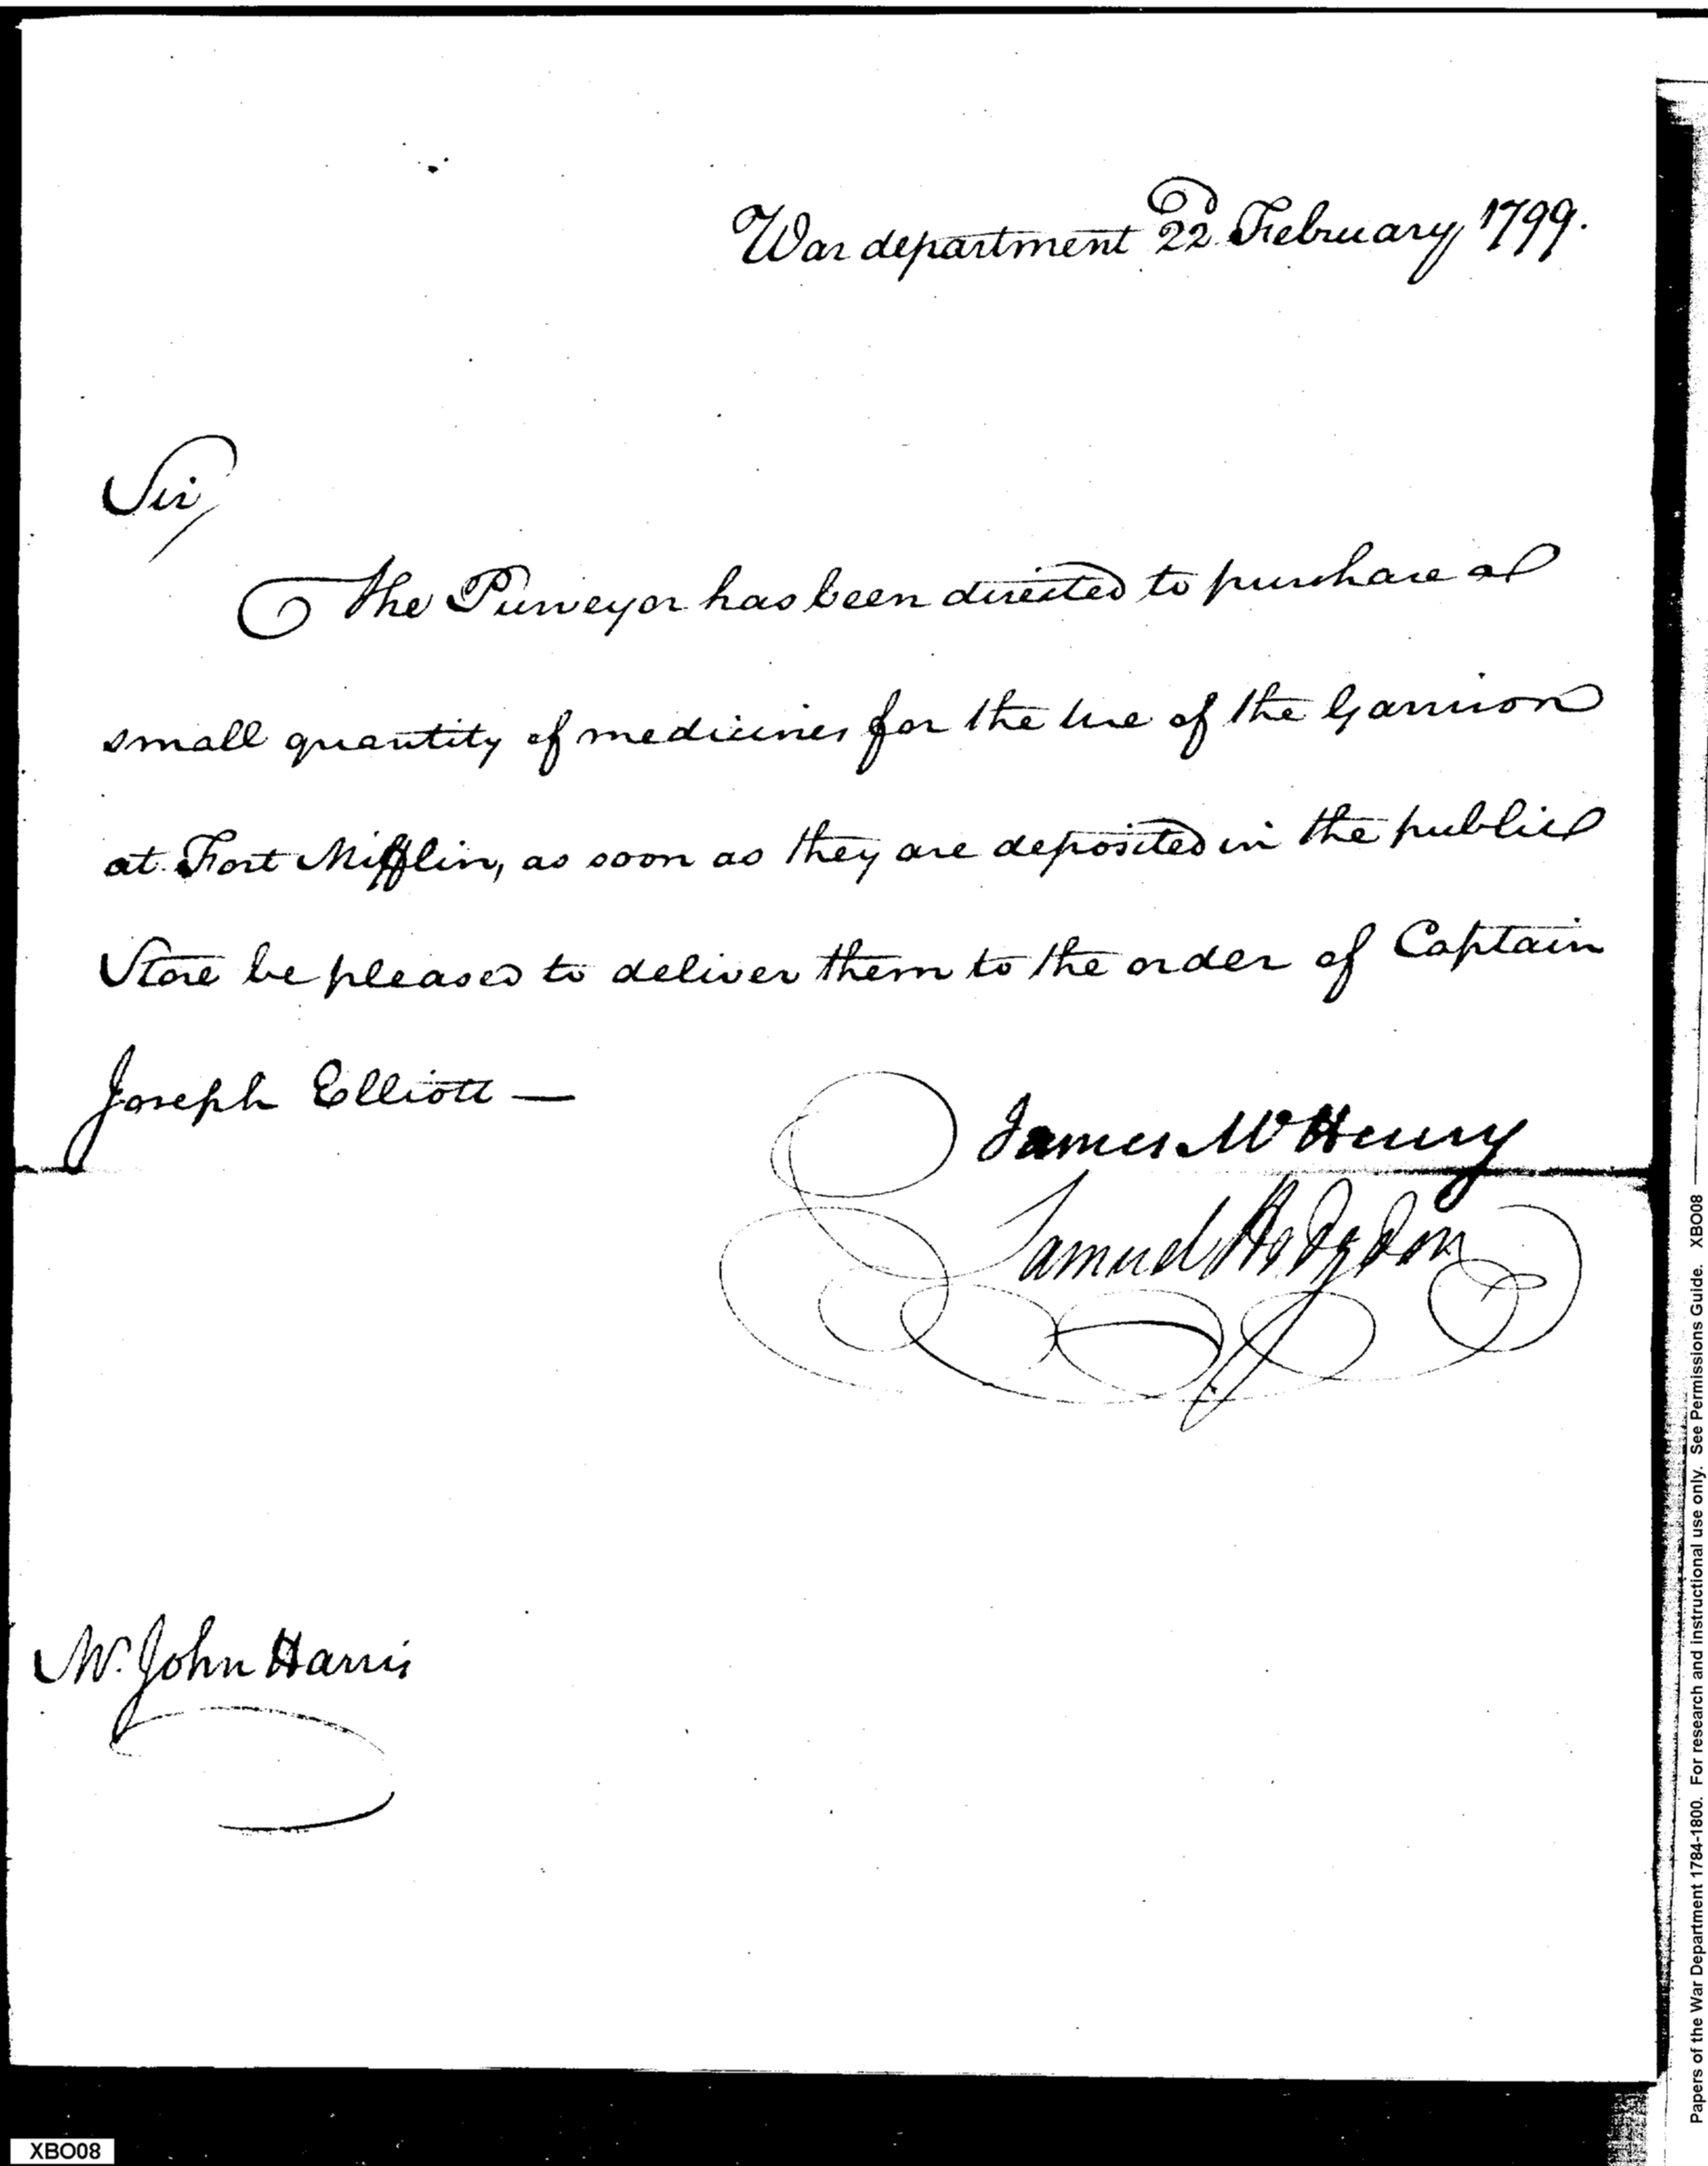 War department 22d February 1799.
Sir,
The Purveyor has been directed to purchase a
small quantity of medicines for the use of the Garrison
at Fort Mifflin, as soon as they are deposited in the public
Store be pleased to deliver them to the order of Captain
Joseph Elliott —
James McHenry
Samuel Hodgdon
Mr. John Harris
XBO08
Papers of the War Department 1784-1800. For research and instructional use only. See Permissions Guide. XBO08